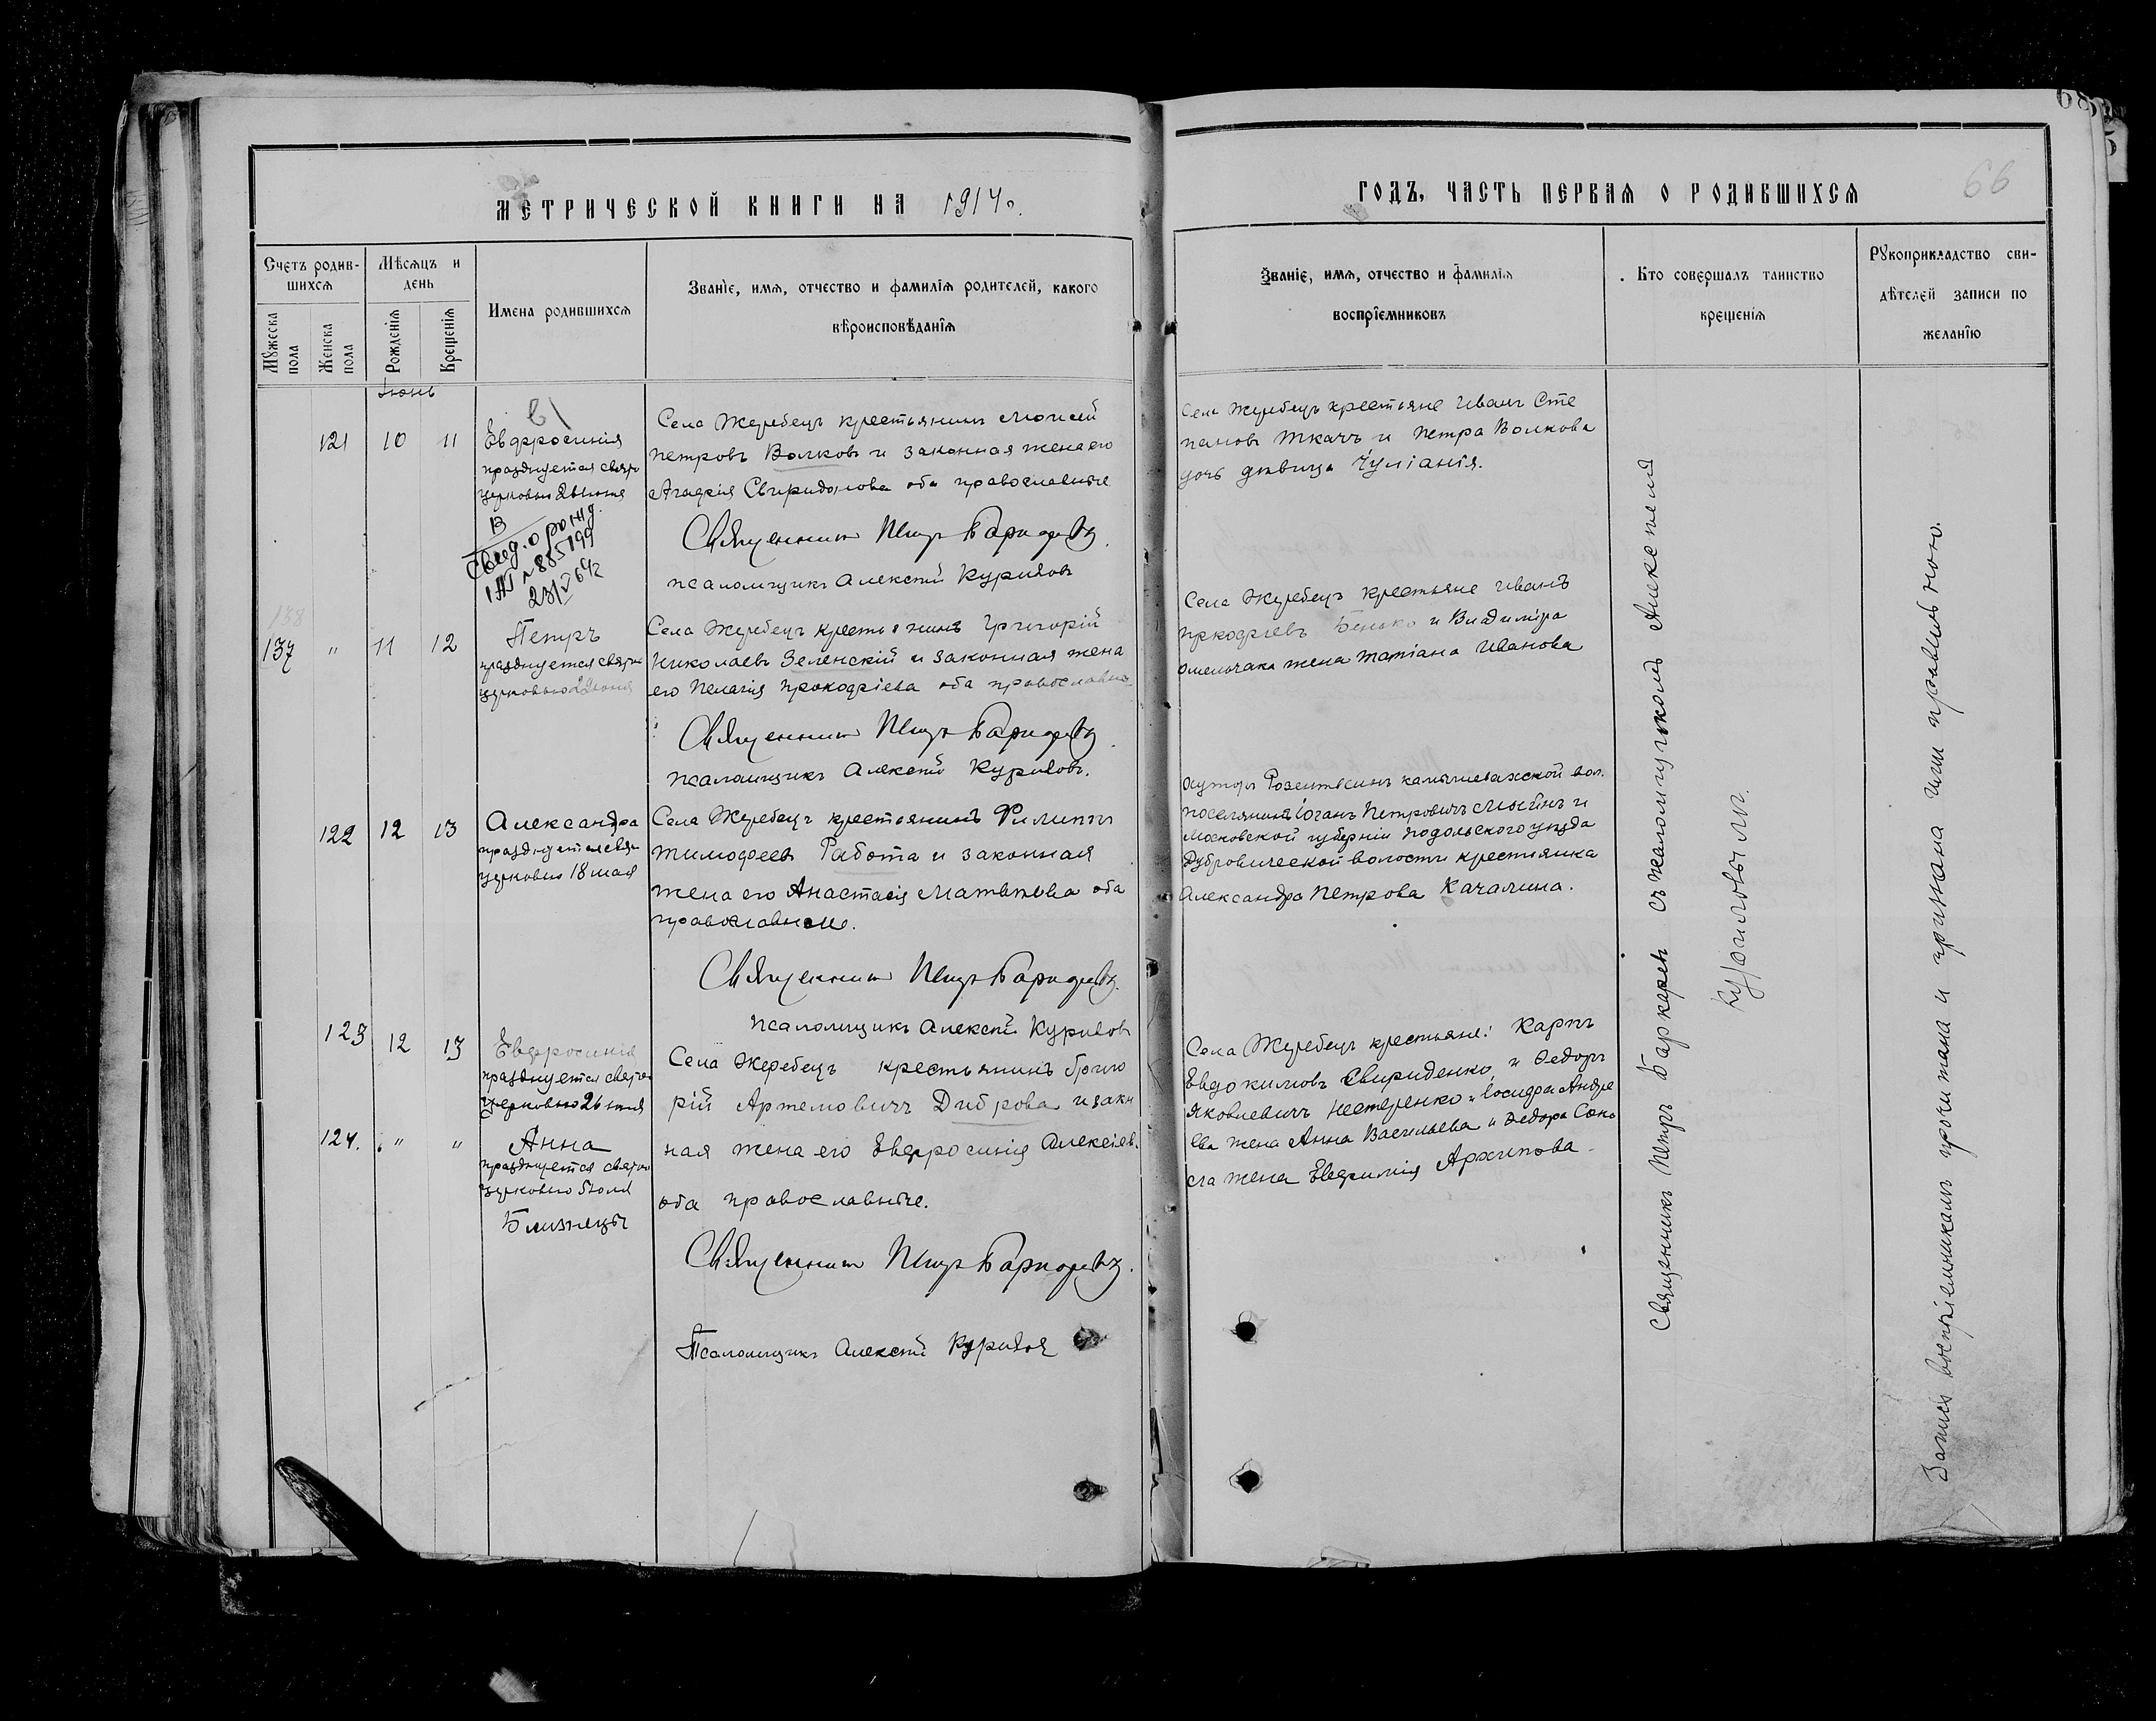 МЕТРИЧЕСКОЙ КНИГИ НА 1914 г.
Счетъ родив-
шихся
Мѣсяцъ и
день
Мужеска
пола
Женска
пола
Рожденія
Крещенія
Имена родившихся
Званіе, имя, отчество и фамилія родителей, какого
вѣроисповѣданія
Іюнь
121 10 11
Евфросинія
празднуется свят.
церковью
В
Свид. о рожд.
№ 885199
Села Жеребецъ крестьянинъ Моисей
Петровъ Волковъ и законная жена его
Агафія Свиридонова оба православные
Священникъ Петръ
псаломщикъ Алексѣй Куриловъ
138
137 " 11 12
Петръ
празднуется свято
церковью
Села Жеребецъ крестьянинъ Григорій
Николаевъ Зеленскій и законная жена
его Пелагія Прокофіева оба православные
Священникъ Петръ
псаломщикъ Алексѣй Куриловъ.
122 12 13
Александра
празднуется свят
церковью 18 мая
Села Жеребецъ крестьянинъ Филиппъ
Тимофеевъ Работа и законная
жена его Анастасія Матвѣева оба
православные.
Священникъ Петръ
псаломщикъ Алексѣй Куриловъ
123 12 13
Евфросинія
празднуется свято
церковью
Села Жеребецъ крестьянинъ Григо
рій Артемовичъ Диброва и закн
124. " "
Анна
празднуется свято
церковью
Близнецы
ная жена его Евфросинія Алексіев.
оба православные.
Священникъ Петръ
Псаломщикъ Алексѣй Куриловъ
68
66
ГОДЪ, ЧАСТЬ ПЕРВАЯ О РОДИВШИХСЯ
Званіе, имя, отчество и фамилія
воспріемниковъ
Кто совершалъ таинство
крещенія
Рукоприкладство сви-
дѣтелей записи по
желанію
Села Жеребецъ крестьяне Иванъ Сте
пановъ Ткачъ и Петра Волкова
дочь дѣвица Іуліанія.
Села Жеребецъ крестьяне Иванъ
Прокофіевъ и Владиміра
Омельчака жена Татіана Иванова
Хуторъ Камышевахской вол.
поселянинъ Іоганъ Петровичъ и
Московской губерніи Подольского уѣзда
Дубровической волости крестьянка
Александра Петрова Качалина.
Села Жеребецъ крестьяне: Карпъ
Евдокимовъ Свириденко и Федоръ
Яковлевичъ Нестеренко и Іосифа Андре
ева жена Анна Васильева и Федора Соко
ла жена Евфимія Архипова.
Священникъ Петръ съ псаломщикомъ Алексѣемъ
Куриловымъ.
Запись воспріемникамъ прочитана и признана ими правильною.